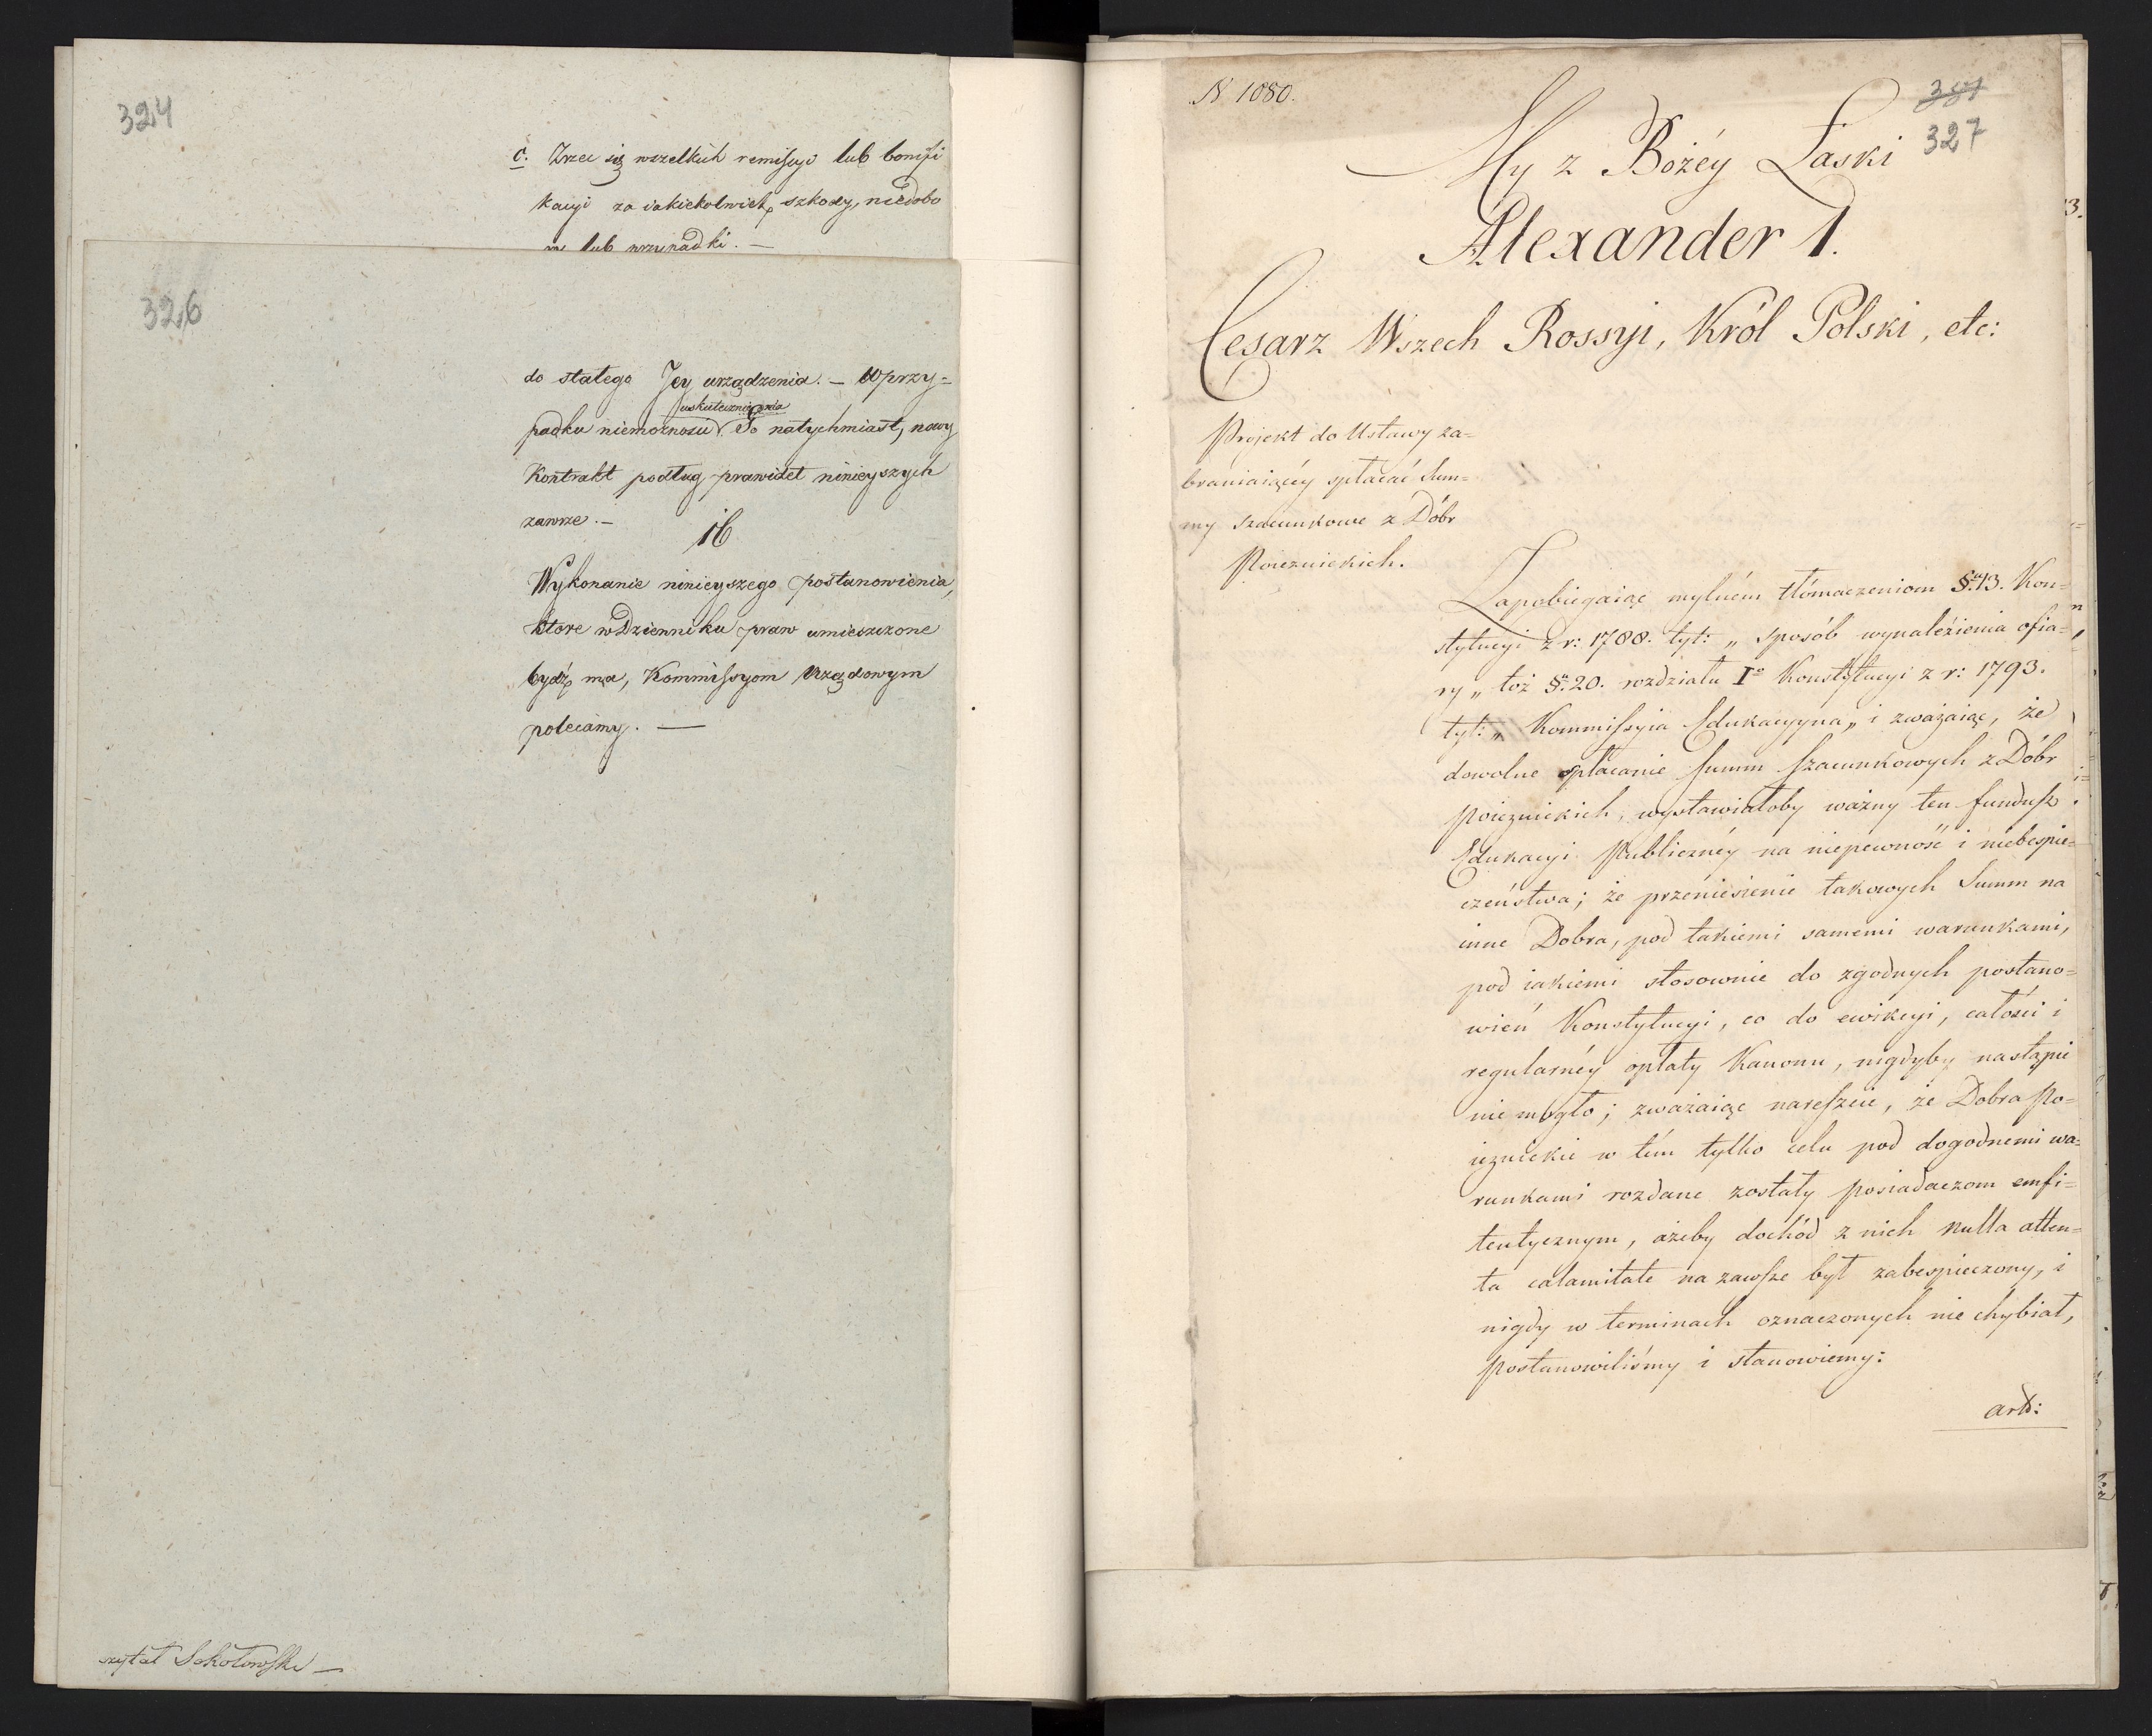 324
c. Zrzec się wszelkich remissyi lub bonifi
kacyi za iakiekolwiek szkody, niedobo
ry lub wypadki. —
326
do stałego Jey urządzenia. — W przy=
uskutecznienia
padku niemożnosci To natychmiast, nowy
Kontrakt podług prawideł ninieyszych
zawrze. —
16
Wykonanie ninieyszego postanowienia,
ktore w Dzienniku praw umieszczone
bydź ma, Kommissyom Rządowym
polecamy. —
czytał Sokołowski —
N 1080.
381
327
My z Bożéy Łaski
Alexander 1.
Cesarz Wszech Rossyi, Król Polski, etc:
Projekt do Ustawy za=
braniaiącéy spłacać Sum=
my szacunkowe z Dóbr
Poiezuickich.
Zapobiegaiąc mylném tłómaczeniom §. 13. Kon=
stytucyi z r: 1788. tyt: „ sposób wynaleźienia ofia=
ry „ toż §. 20. rozdziału Iº Konstytucyi z r: 1793.
tyt: „ Kommissyia Edukacyyna „ i zważaiąc, że
dowolne spłacanie summ szacunkowych z Dóbr
poiezuickich, wystawiałoby ważny ten fundusz
Edukacyi Publicznéy na niepewność i niebespie=
czeństwa; że przeniesienie takowych Summ na
inne Dobra, pod takiemi samemi warunkami,
pod iakiemi stosownie do zgodnych postano=
wień Konstytucyi, co do ewikcyi, całości i
regularnéy opłaty Kanonu, nigdyby nastąpić
nie mogło; zważaiąc nareszcie, że Dobra Po=
iezuickie w tém tylko celu pod dogodnemi wa=
runkami rozdane zostały posiadaczom emfi=
teutycznym, ażeby dochód z nich nulla atten=
ta calamitate na zawsze był zabespieczony, i
nigdy w terminach oznaczonych nie chybiał,
postanowiliśmy i stanowiemy:
art: